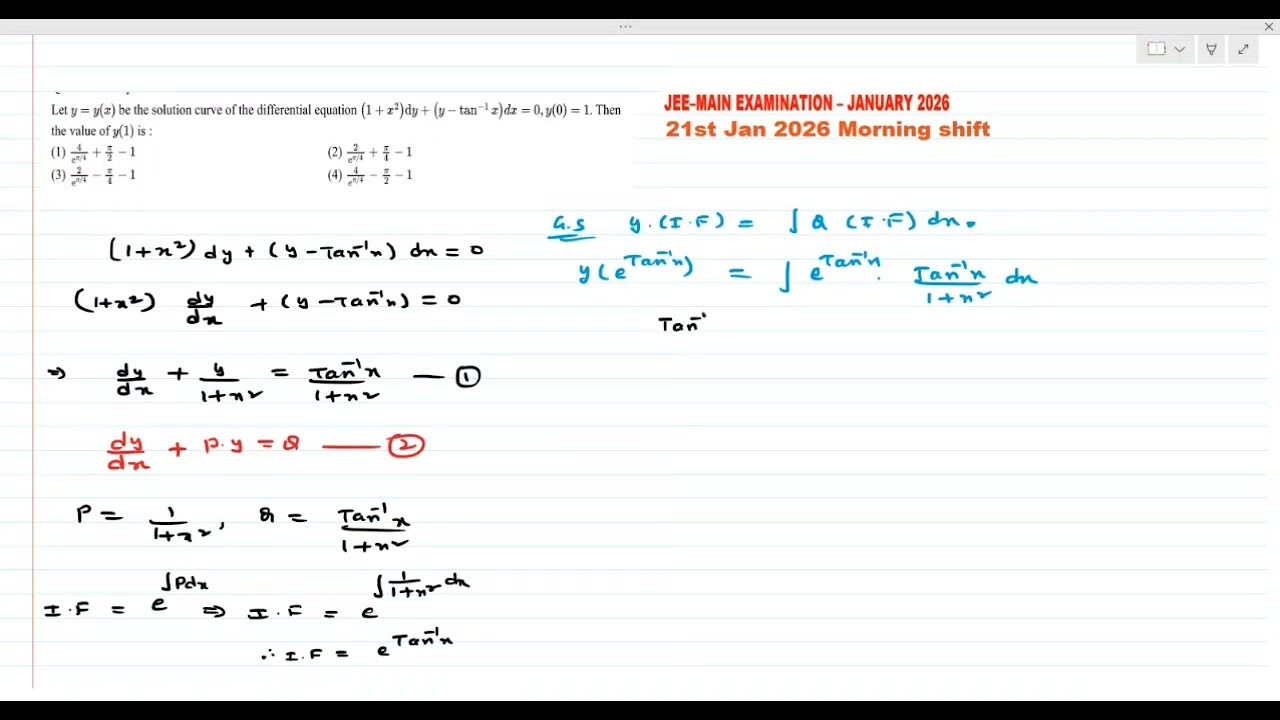 Let y = y(x) be the solution curve of the differential equation (1 + x²)dy + (y − tan⁻¹ x)dx = 0, y(0) = 1. Then
the value of y(1) is :
(1) 4/e^(π/4) + π/2 − 1
(2) 2/e^(π/4) + π/4 − 1
(3) 2/e^(π/4) − π/4 − 1
(4) 4/e^(π/4) − π/2 − 1
JEE-MAIN EXAMINATION – JANUARY 2026
21st Jan 2026 Morning shift
(1+x²) dy + (y − Tan⁻¹x) dx = 0
(1+x²) dy/dx + (y − Tan⁻¹x) = 0
⇒ dy/dx + y/1+x² = Tan⁻¹x/1+x² — ①
dy/dx + P.y = Q — ②
P = 1/1+x², Q = Tan⁻¹x/1+x²
I.F = e^∫Pdx ⇒ I.F = e^∫1/1+x² dx
∴ I.F = e^Tan⁻¹x
G.S y.(I.F) = ∫ Q (I.F) dx.
y(e^Tan⁻¹x) = ∫ e^Tan⁻¹x . Tan⁻¹x/1+x² dx
Tan⁻¹